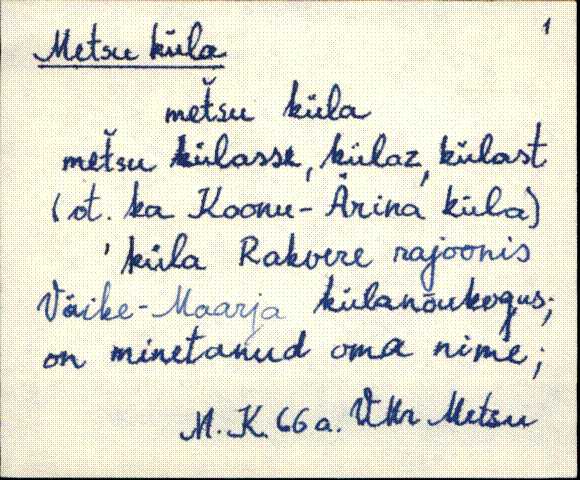 1
Metsu küla
met̆su küla
met̆su külasse, külaz, külast
(ot. ka Koonu-Ärina küla)
' küla Rakvere rajoonis
Väike-Maarja külanõukogus;
on minetanud oma nime;
M. K. 66 a. VMr Metsu